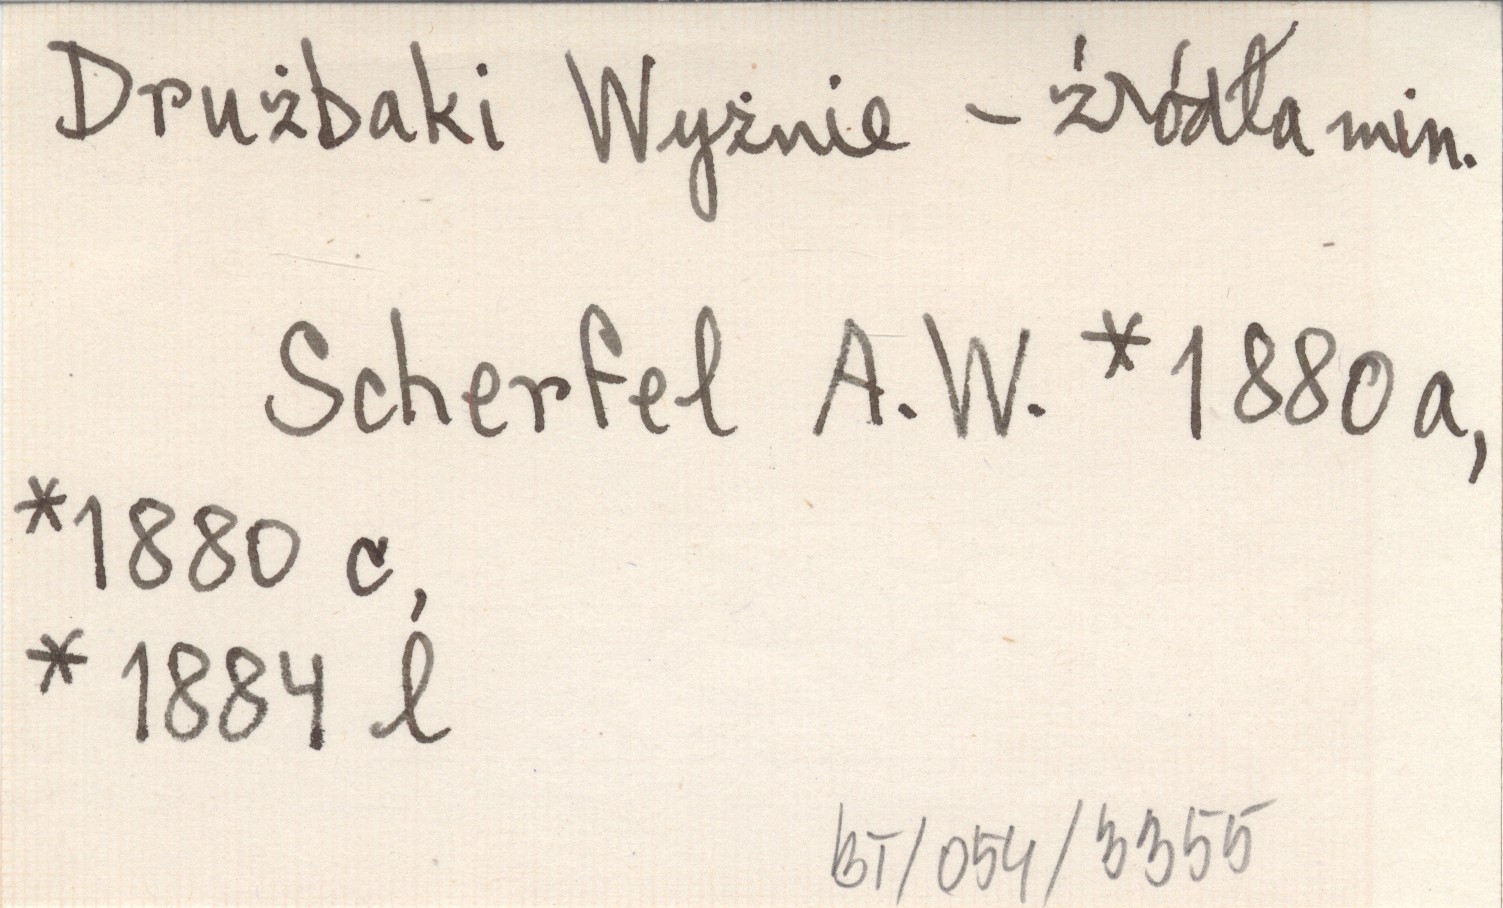 Drużbaki Wyżnie - źródła min.
Scherfel A.W. *1880 a,
*1880 c,
* 1884 l
BT/054/3355